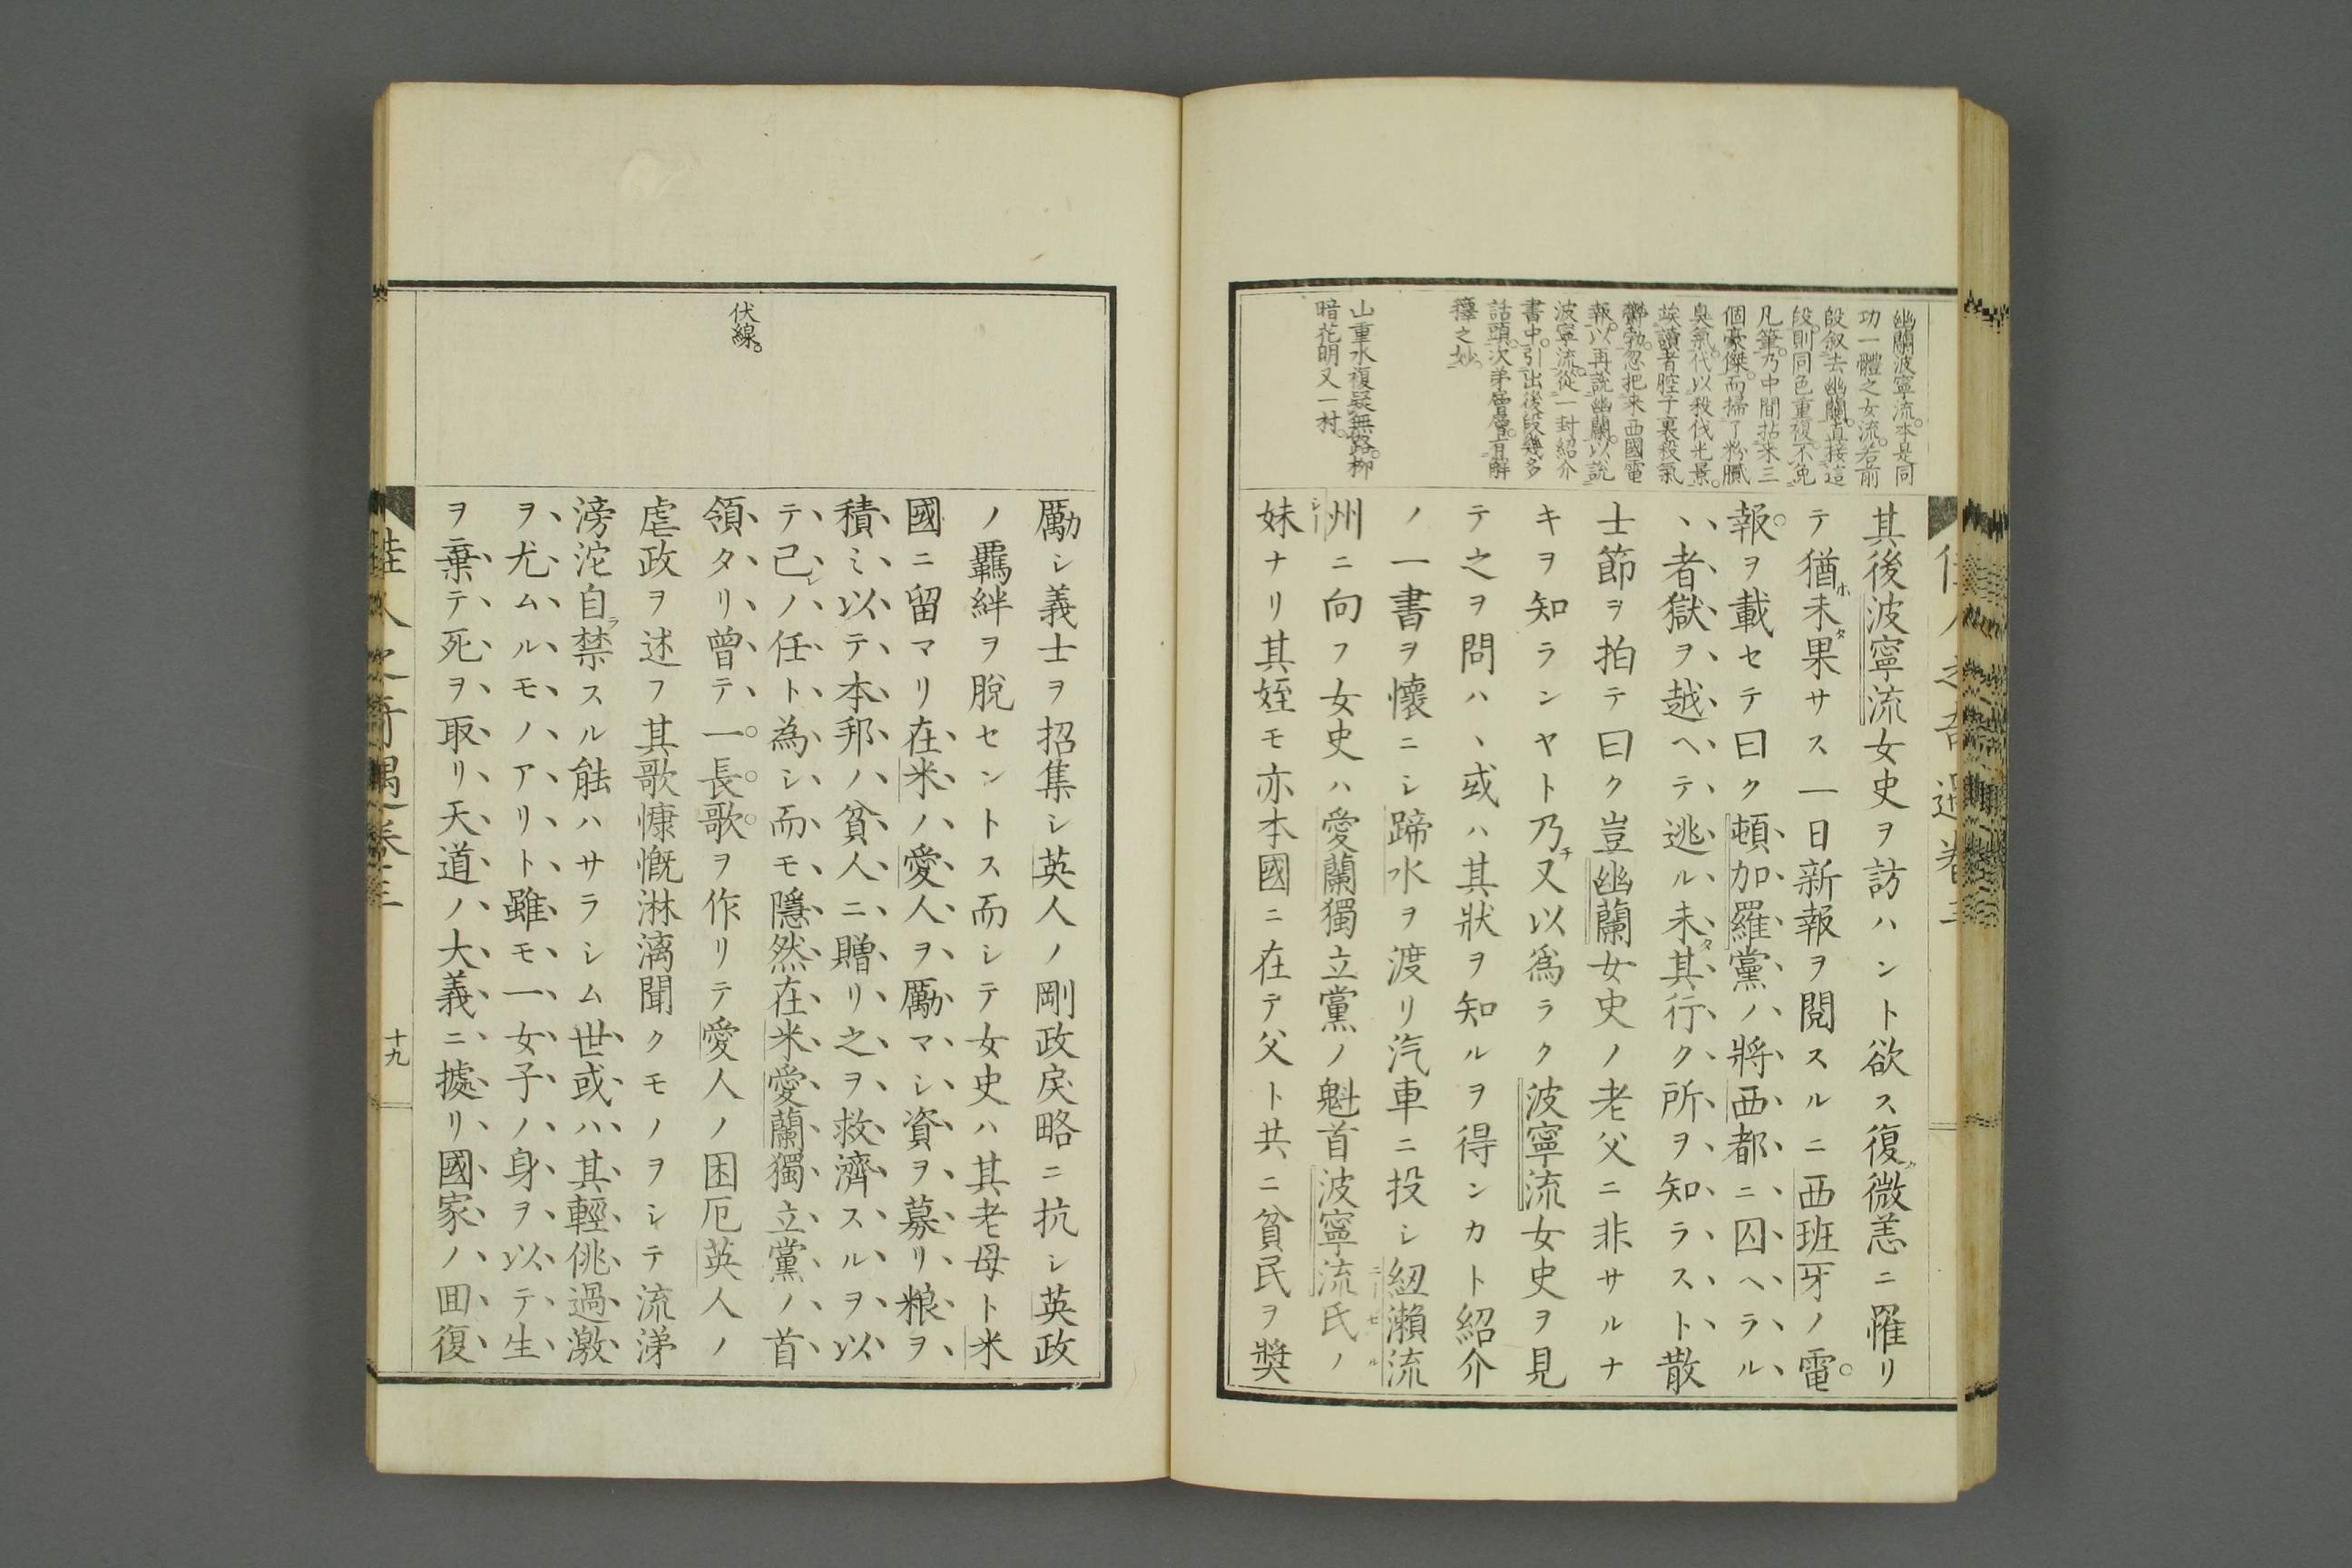 幽蘭波寧流。本是同
功一體之女流。若前
段叙去幽蘭。直接這
段。則同色重複。不免
凡筆。乃中間拈来三
個豪傑。而掃了粉膩
臭氣。代以殺伐光景。
讀者腔子裏殺氣
勃。忽把来西國電
報。以再説幽蘭。以説
波寧流。從一封紹介
書中。引出後段幾多
話頭。次第層層。有解
釋之妙。
山重水複疑無路。柳
暗花明又一村。
佳人之奇遇卷三
其後波寧流女史ヲ訪ハント欲ス復微恙ニ罹リ
テ猶ホ未タ果サス一日新報ヲ閲スルニ西班牙ノ電
報ヲ載セテ曰ク頓加羅黨ノ將西都ニ囚ヘラル
、者獄ヲ越ヘテ逃ル未タ其行ク所ヲ知ラスト散
士節ヲ拍テ曰ク豈幽蘭女史ノ老父ニ非サルナ
キヲ知ランヤト乃チ又以爲ラク波寧流女史ヲ見
テ之ヲ問ハ、或ハ其狀ヲ知ルヲ得ンカト紹介
ノ一書ヲ懷ニシ蹄水ヲ渡リ汽車ニ投シ紐瀬流
州ニ向フ女史ハ愛蘭獨立黨ノ魁首波寧流氏ノ
妹ナリ其姪モ亦本國ニ在テ父ト共ニ貧民ヲ奬
伏線。
勵シ義士ヲ招集シ英人ノ剛政戻略ニ抗シ英政
ノ羈絆ヲ脫セントス而シテ女史ハ其老母ト米
國ニ留マリ在米ノ愛人ヲ勵マシ資ヲ募リ粮ヲ
積ミ以テ本邦ノ貧人ニ贈リ之ヲ救濟スルヲ以
テ己レノ任ト為シ而モ隱然在米愛蘭獨立黨ノ首
領タリ曾テ一長歌ヲ作リテ愛人ノ困厄英人ノ
虐政ヲ述フ其歌慷慨淋漓聞クモノヲシテ流涕
滂沱自ラ禁スル能ハサラシム世或ハ其輕佻過激
ヲ尤ムルモノアリト雖モ一女子ノ身ヲ以テ生
ヲ棄テ死ヲ取リ天道ノ大義ニ據リ國家ノ回復
佳人之奇遇卷三
十九